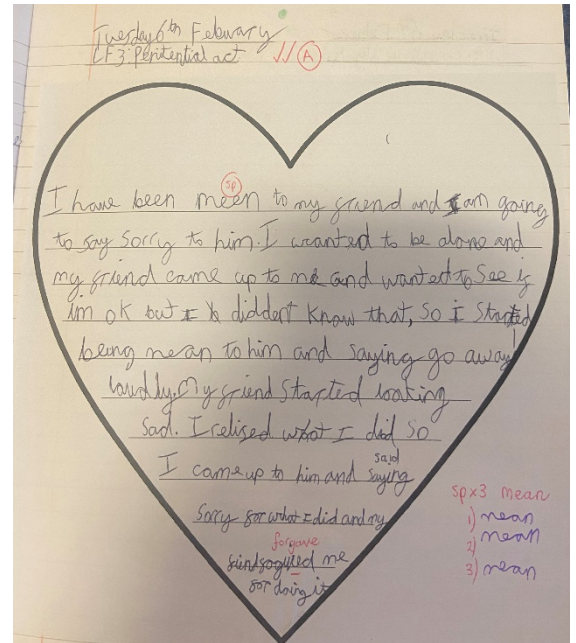 Tuesday 6th Febuary
LF3: Penitential act // A
sp
I have been meen to my friend and I am going
to say sorry to him. I wanted to be alone and
my friend came up to me and wanted to see if
im ok but I diddent know that, so I started
being mean to him and saying go away!
loudly. My friend started looking
sad. I relised what I did so
said
I came up to him and saying
sorry for what I did and my
forgave
me
for doing it
sp x3 mean
1) mean
2) mean
3) mean